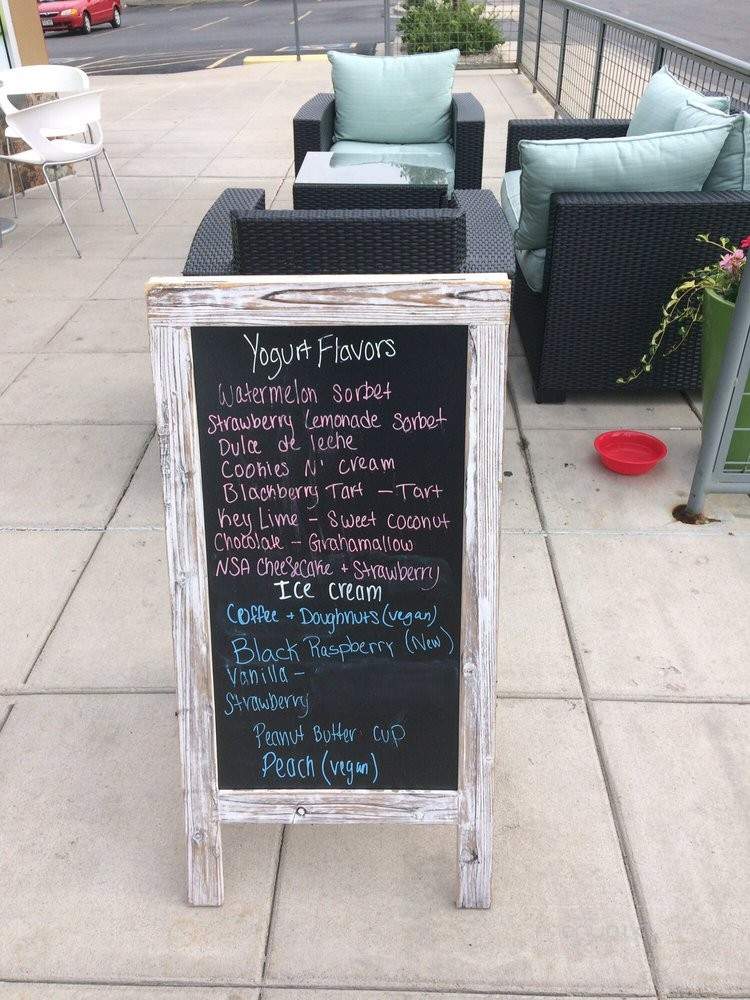 Yogurt Flavors
Watermelon Sorbet
Strawberry Lemonade Sorbet
Dulce de leche
Cookies N' Cream
Blackberry Tart - Tart
Key Lime - Sweet Coconut
Chocolate - Grahamallow
NSA Cheesecake + Strawberry
Ice cream
Coffee + Doughnuts (vegan)
Black Raspberry (New)
Vanilla -
Strawberry
Peanut Butter cup
Peach (vegan)